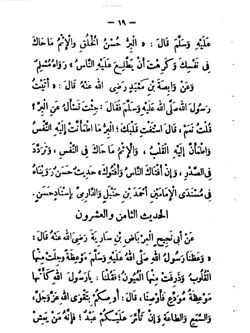 — ١٩ —
عَلَيْهِ وَسَلَّمَ قَالَ : « الْبِرُّ حُسْنُ الْخُلُقِ وَالْإِثْمُ مَا حَاكَ
فِي نَفْسِكَ وَكَرِهْتَ أَنْ يَطَّلِعَ عَلَيْهِ النَّاسُ » رَوَاهُ مُسْلِمٌ
وَعَنْ وَابِصَةَ بْنِ مَعْبَدٍ رَضِيَ اللهُ عَنْهُ قَالَ : « أَتَيْتُ
رَسُولَ اللهِ صَلَّى اللهُ عَلَيْهِ وَسَلَّمَ فَقَالَ : جِئْتَ تَسْأَلُ عَنِ الْبِرِّ ؟
قُلْتُ نَعَمْ ، قَالَ : اسْتَفْتِ قَلْبَكَ ؛ الْبِرُّ مَا اطْمَأَنَّتْ إِلَيْهِ النَّفْسُ
وَاطْمَأَنَّ إِلَيْهِ الْقَلْبُ ، وَالْإِثْمُ مَا حَاكَ فِي النَّفْسِ وَتَرَدَّدَ
فِي الصَّدْرِ ، وَإِنْ أَفْتَاكَ النَّاسُ وَأَفْتَوْكَ » حَدِيثٌ حَسَنٌ رَوَيْنَاهُ
فِي مُسْنَدَيِ الْإِمَامَيْنِ أَحْمَدَ بْنِ حَنْبَلٍ وَالدَّارِمِيِّ بِإِسْنَادٍ حَسَنٍ .
الحديث الثامن والعشرون
عَنْ أَبِي نَجِيحٍ الْعِرْبَاضِ بْنِ سَارِيَةَ رَضِيَ اللهُ عَنْهُ قَالَ :
« وَعَظَنَا رَسُولُ اللهِ صَلَّى اللهُ عَلَيْهِ وَسَلَّمَ مَوْعِظَةً وَجِلَتْ مِنْهَا
الْقُلُوبُ وَذَرَفَتْ مِنْهَا الْعُيُونُ ؛ فَقُلْنَا : يَا رَسُولَ اللهِ كَأَنَّهَا
مَوْعِظَةُ مُوَدِّعٍ فَأَوْصِنَا ، قَالَ : أُوصِيكُمْ بِتَقْوَى اللهِ عَزَّ وَجَلَّ ،
وَالسَّمْعِ وَالطَّاعَةِ وَإِنْ تَأَمَّرَ عَلَيْكُمْ عَبْدٌ ؛ فَإِنَّهُ مَنْ يَعِشْ